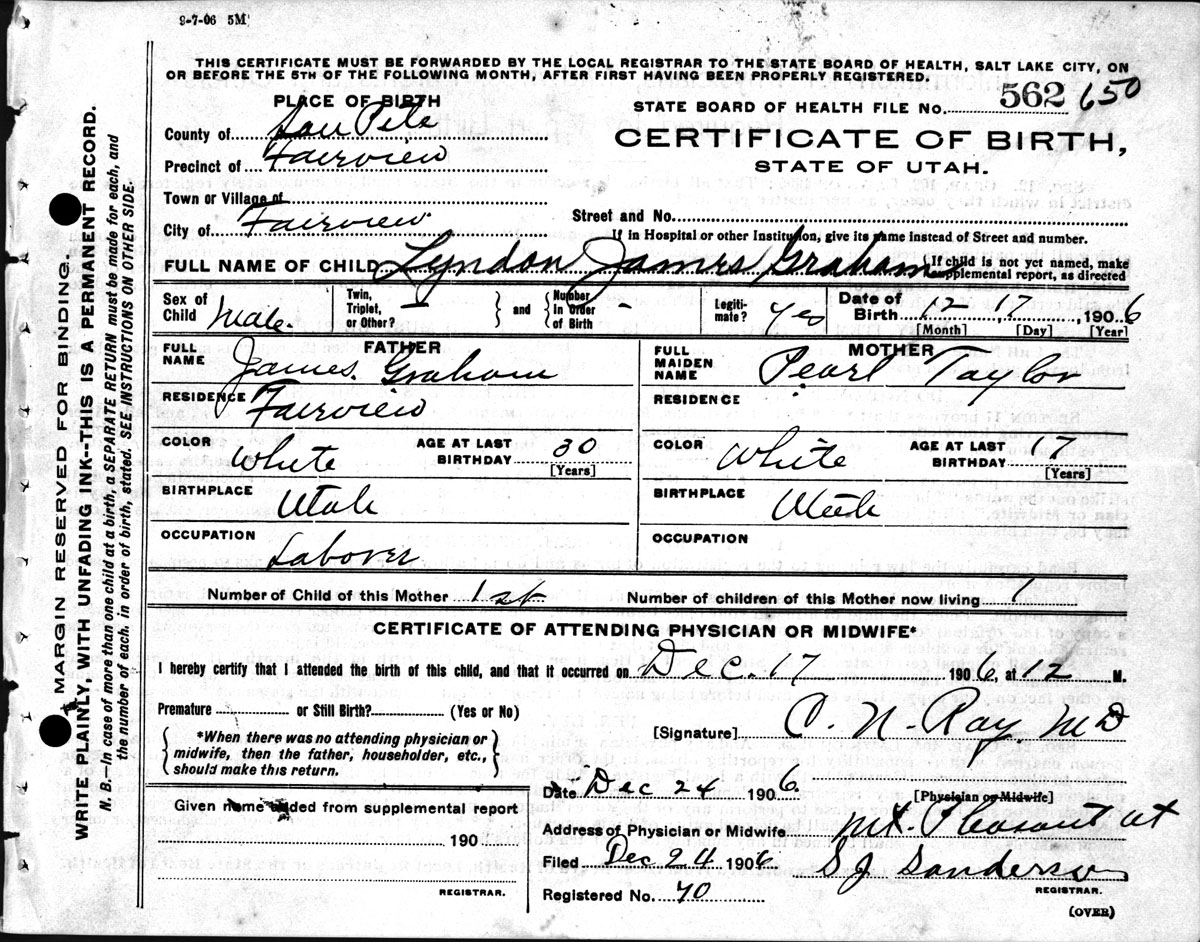 9-7-06 5M
THIS CERTIFICATE MUST BE FORWARDED BY THE LOCAL REGISTRAR TO THE STATE BOARD OF HEALTH, SALT LAKE CITY, ON
OR BEFORE THE 5TH OF THE FOLLOWING MONTH, AFTER FIRST HAVING BEEN PROPERLY REGISTERED.
PLACE OF BIRTH
STATE BOARD OF HEALTH FILE No. 562 650
County of San Pete
CERTIFICATE OF BIRTH,
STATE OF UTAH.
Precinct of Fairview
Town or Village of
City of Fairview
Street and No.
If in Hospital or other Institution, give its name instead of Street and number.
FULL NAME OF CHILD Lyndon James Graham
{If child is not yet named, make
supplemental report, as directed
Sex of Child Male.
Twin, Triplet, or Other? } and { Number In Order of Birth -
Legitimate? Yes
Date of Birth 12 17, 1906
[Month] [Day] [Year]
FATHER
FULL NAME James Graham
RESIDENCE Fairview
COLOR White AGE AT LAST BIRTHDAY 30 [Years]
BIRTHPLACE Utah
OCCUPATION Laborer
MOTHER
FULL MAIDEN NAME Pearl Taylor
RESIDENCE
COLOR White AGE AT LAST BIRTHDAY 17 [Years]
BIRTHPLACE Utah
OCCUPATION
Number of Child of this Mother 1st Number of children of this Mother now living 1
CERTIFICATE OF ATTENDING PHYSICIAN OR MIDWIFE*
I hereby certify that I attended the birth of this child, and that it occurred on Dec. 17 1906, at 12 M.
Premature or Still Birth? (Yes or No)
{ *When there was no attending physician or
midwife, then the father, householder, etc.,
should make this return. }
[Signature] C. N. Ray MD
Date Dec 24 1906
[Physician or Midwife]
Given name added from supplemental report
190
REGISTRAR.
Address of Physician or Midwife Mt. Pleasant ut
Filed Dec 24 1906 S J Sanderson
REGISTRAR.
Registered No. 70
(OVER)
MARGIN RESERVED FOR BINDING.
WRITE PLAINLY, WITH UNFADING INK--THIS IS A PERMANENT RECORD.
N. B.—In case of more than one child at a birth, a SEPARATE RETURN must be made for each, and
the number of each, in order of birth, stated. SEE INSTRUCTIONS ON OTHER SIDE.